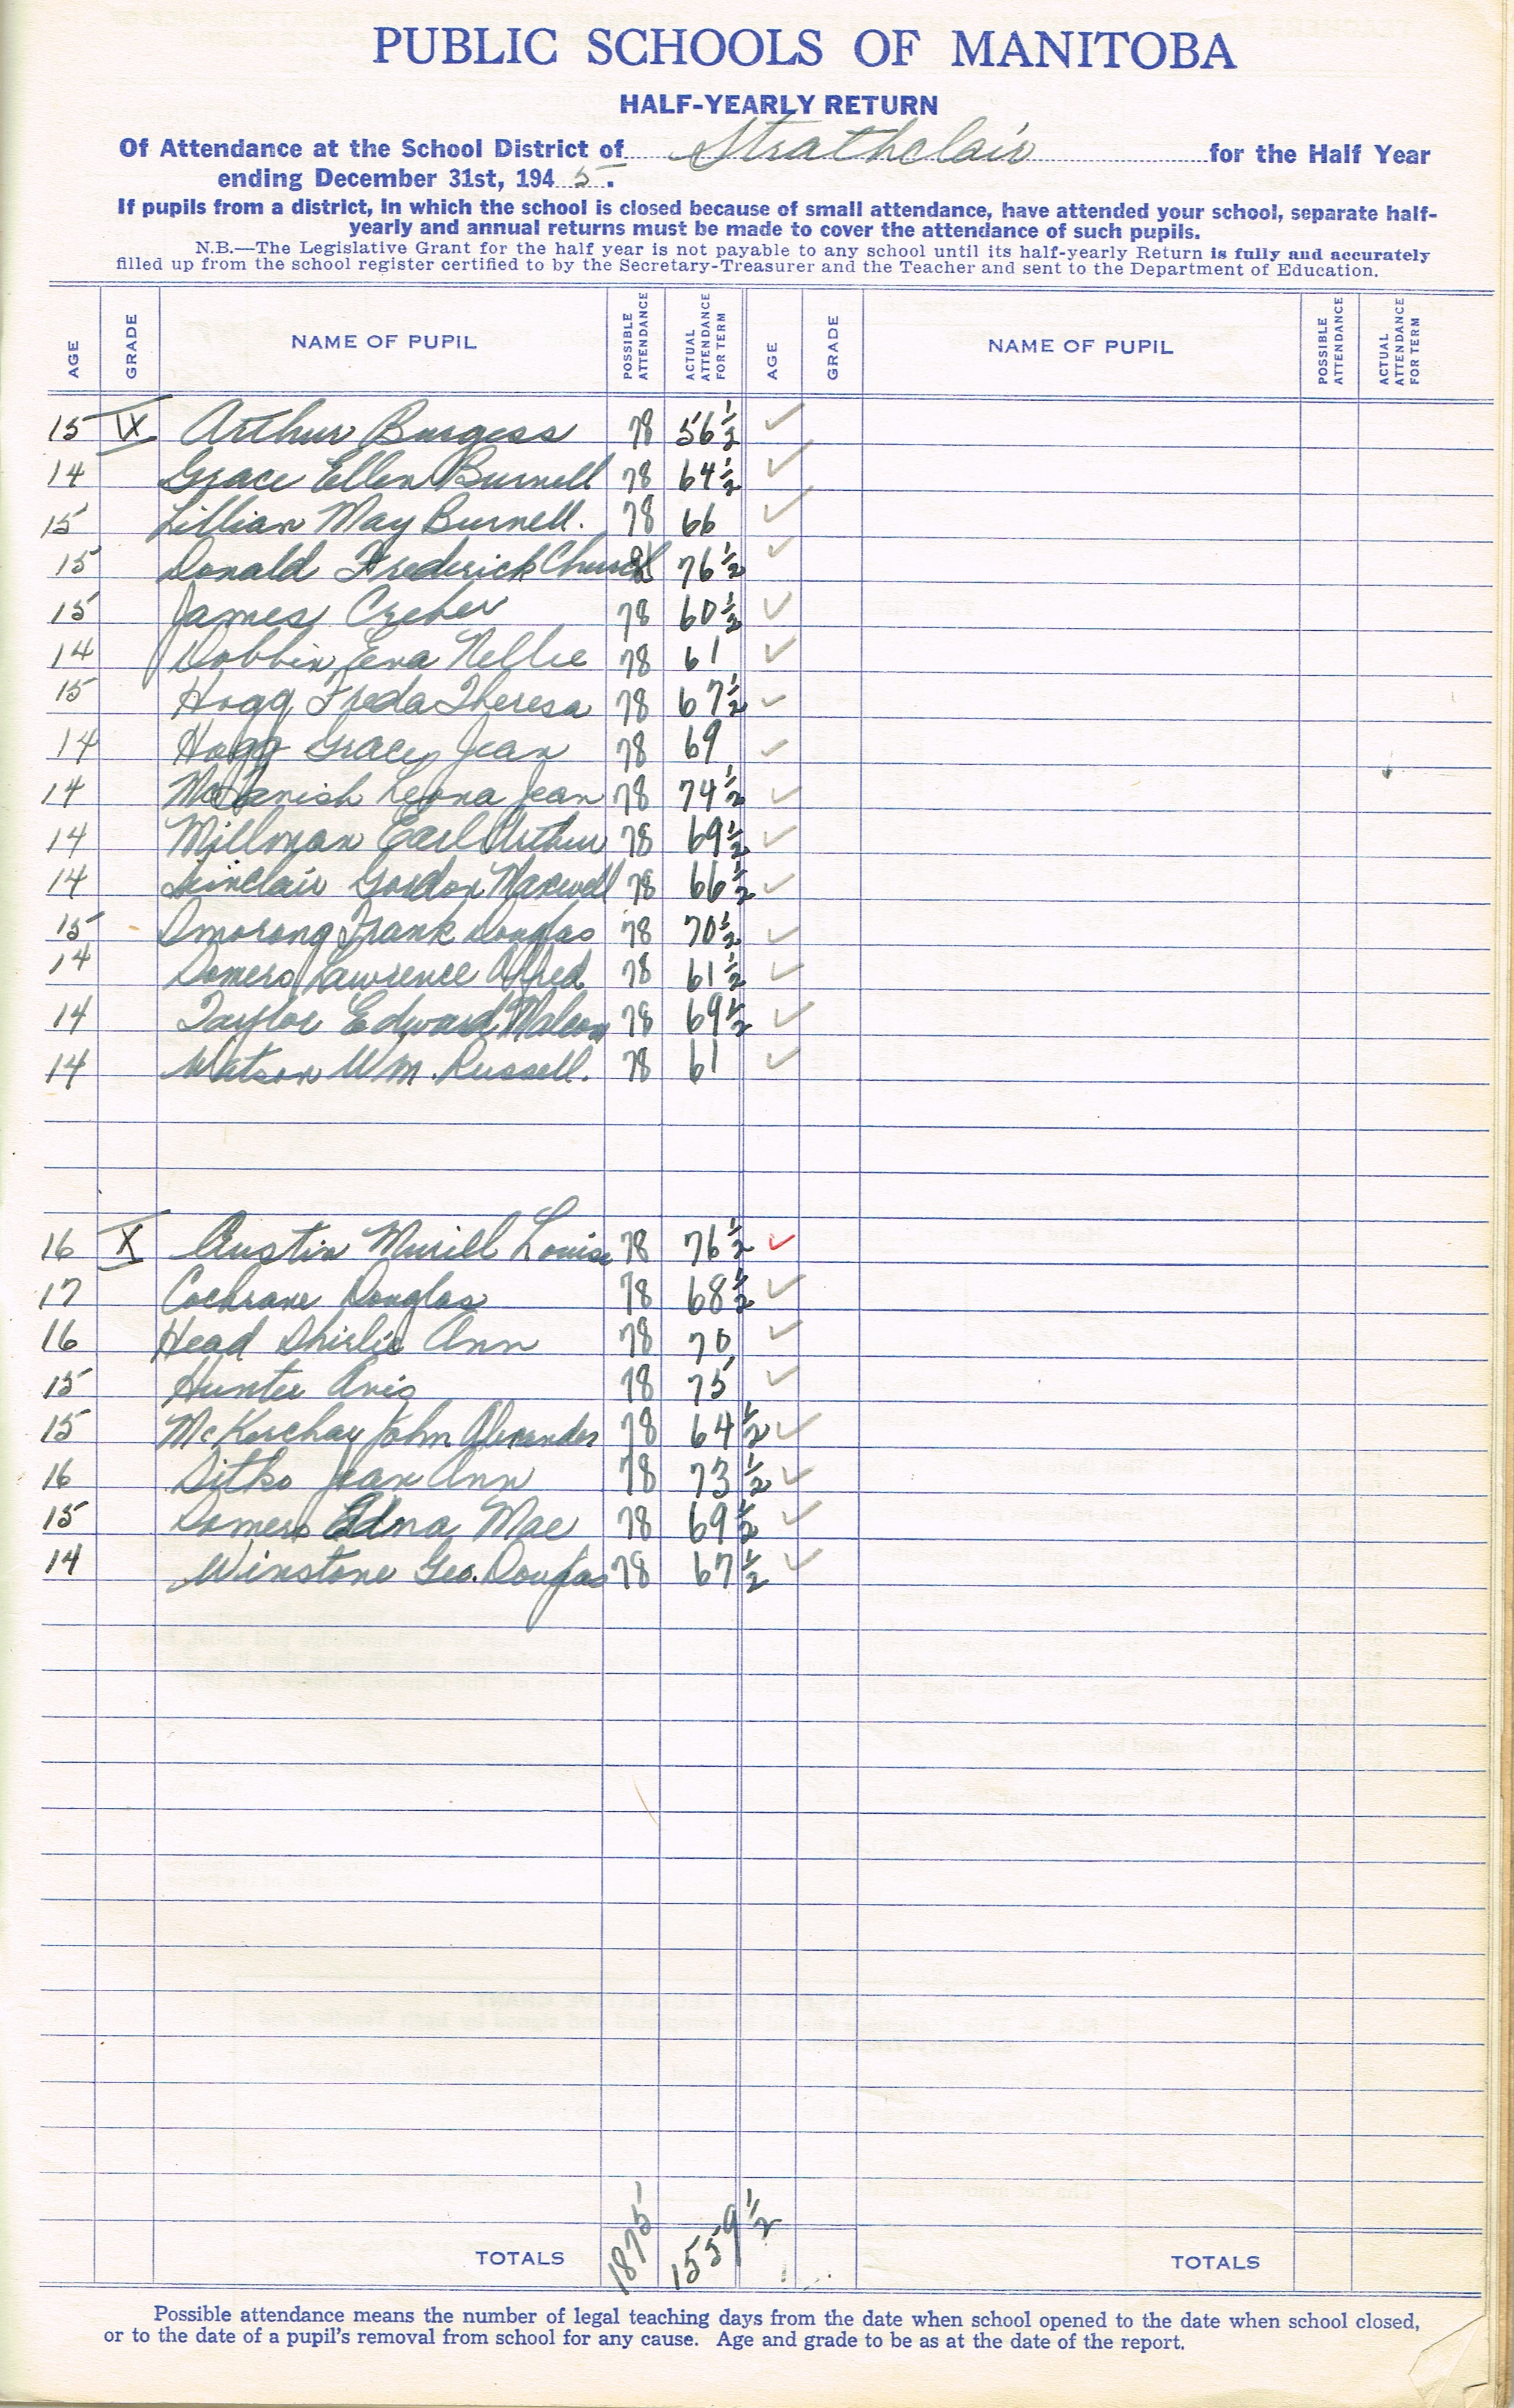 PUBLIC SCHOOLS OF MANITOBA
HALF-YEARLY RETURN
Of Attendance at the School District of Strathclair for the Half Year
ending December 31st, 194 5.
If pupils from a district, in which the school is closed because of small attendance, have attended your school, separate half-
yearly and annual returns must be made to cover the attendance of such pupils.
N.B.—The Legislative Grant for the half year is not payable to any school until its half-yearly Return is fully and accurately
filled up from the school register certified to by the Secretary-Treasurer and the Teacher and sent to the Department of Education.
AGE GRADE NAME OF PUPIL POSSIBLE ATTENDANCE ACTUAL ATTENDANCE FOR TERM AGE GRADE NAME OF PUPIL POSSIBLE ATTENDANCE ACTUAL ATTENDANCE FOR TERM
15 IX Arthur Burgess 78 56 1/2 ✓
14 Grace Ellen Burnell 78 64 1/2 ✓
15 Lillian May Burnell. 78 66 ✓
15 Donald Frederick Church 76 1/2 ✓
15 James Creber 78 60 1/2 ✓
14 Dobbin, Eena Nellie 78 61 ✓
15 Hogg Freda Theresa 78 67 1/2 ✓
14 Hogg Grace Jean 78 69 ✓
14 Leona Jean 78 74 1/2 ✓
14 Millman Earl Arthur 78 69 1/2 ✓
14 Sinclair Gordon Maxwell 78 66 1/2 ✓
15 Smorong Frank Douglas 78 70 1/2 ✓
14 Somers Lawrence Alfred 78 61 1/2 ✓
14 Taylor Edward 78 69 1/2 ✓
14 Watson Wm. Russell. 78 61 ✓
16 X Austin Muriell Louise 78 76 1/2 ✓
17 Cochrane Douglas 78 68 1/2 ✓
16 Head Shirlie Ann 78 70 ✓
15 Hunter Avis 78 75 ✓
15 McKerchay John Alexander 78 64 1/2 ✓
16 Sitko Jean Ann 78 73 1/2 ✓
15 Somers Edna Mae 78 69 1/2 ✓
14 Winstone Geo. Douglas 78 67 1/2 ✓
TOTALS 1875 1559 1/2 TOTALS
Possible attendance means the number of legal teaching days from the date when school opened to the date when school closed,
or to the date of a pupil's removal from school for any cause. Age and grade to be as at the date of the report.